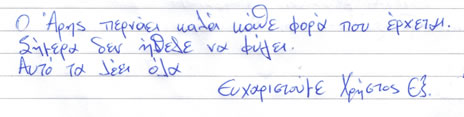 Ο Άρης περνάει καλά κάθε φορά που έρχεται.
Σήμερα δεν ήθελε να φύγει.
Αυτό τα λέει όλα
Ευχαριστούμε Χρήστος Εξ.